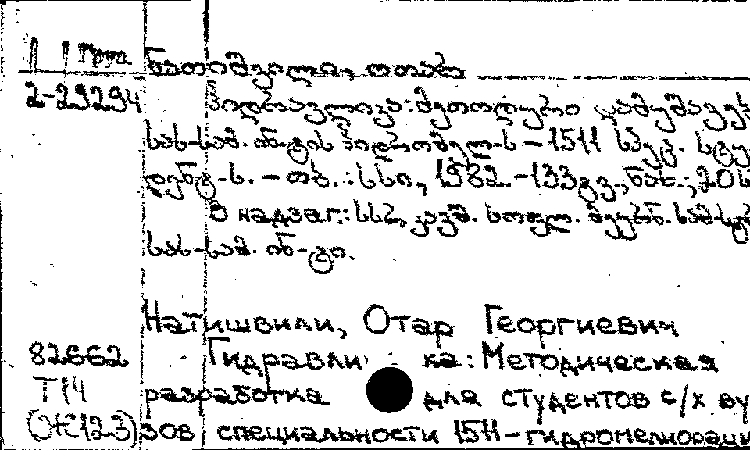 Груз ნათიშვილი, ოთარ
2-29294 ჰიდრავლიკა: მეთოდური დამუშავებ
სას-სამ. ინ-ტის ჰიდრომელ-ს - 1511 სპეც. სტუ
დენტ-ს. - თბ.: სსი, 1982.-133გვ., ნახ.; 20ს
В надзаг.: სსრკ სოფლ. მეურნ. სამ-
სას-სამ. ინ-ტი.
Натишвили, Отар Георгиевич
82662 Гидравлика: Методическая
Т14 разработка для студентов с/х ву
(Ж123) зов специальности 1511-гидромелиораци